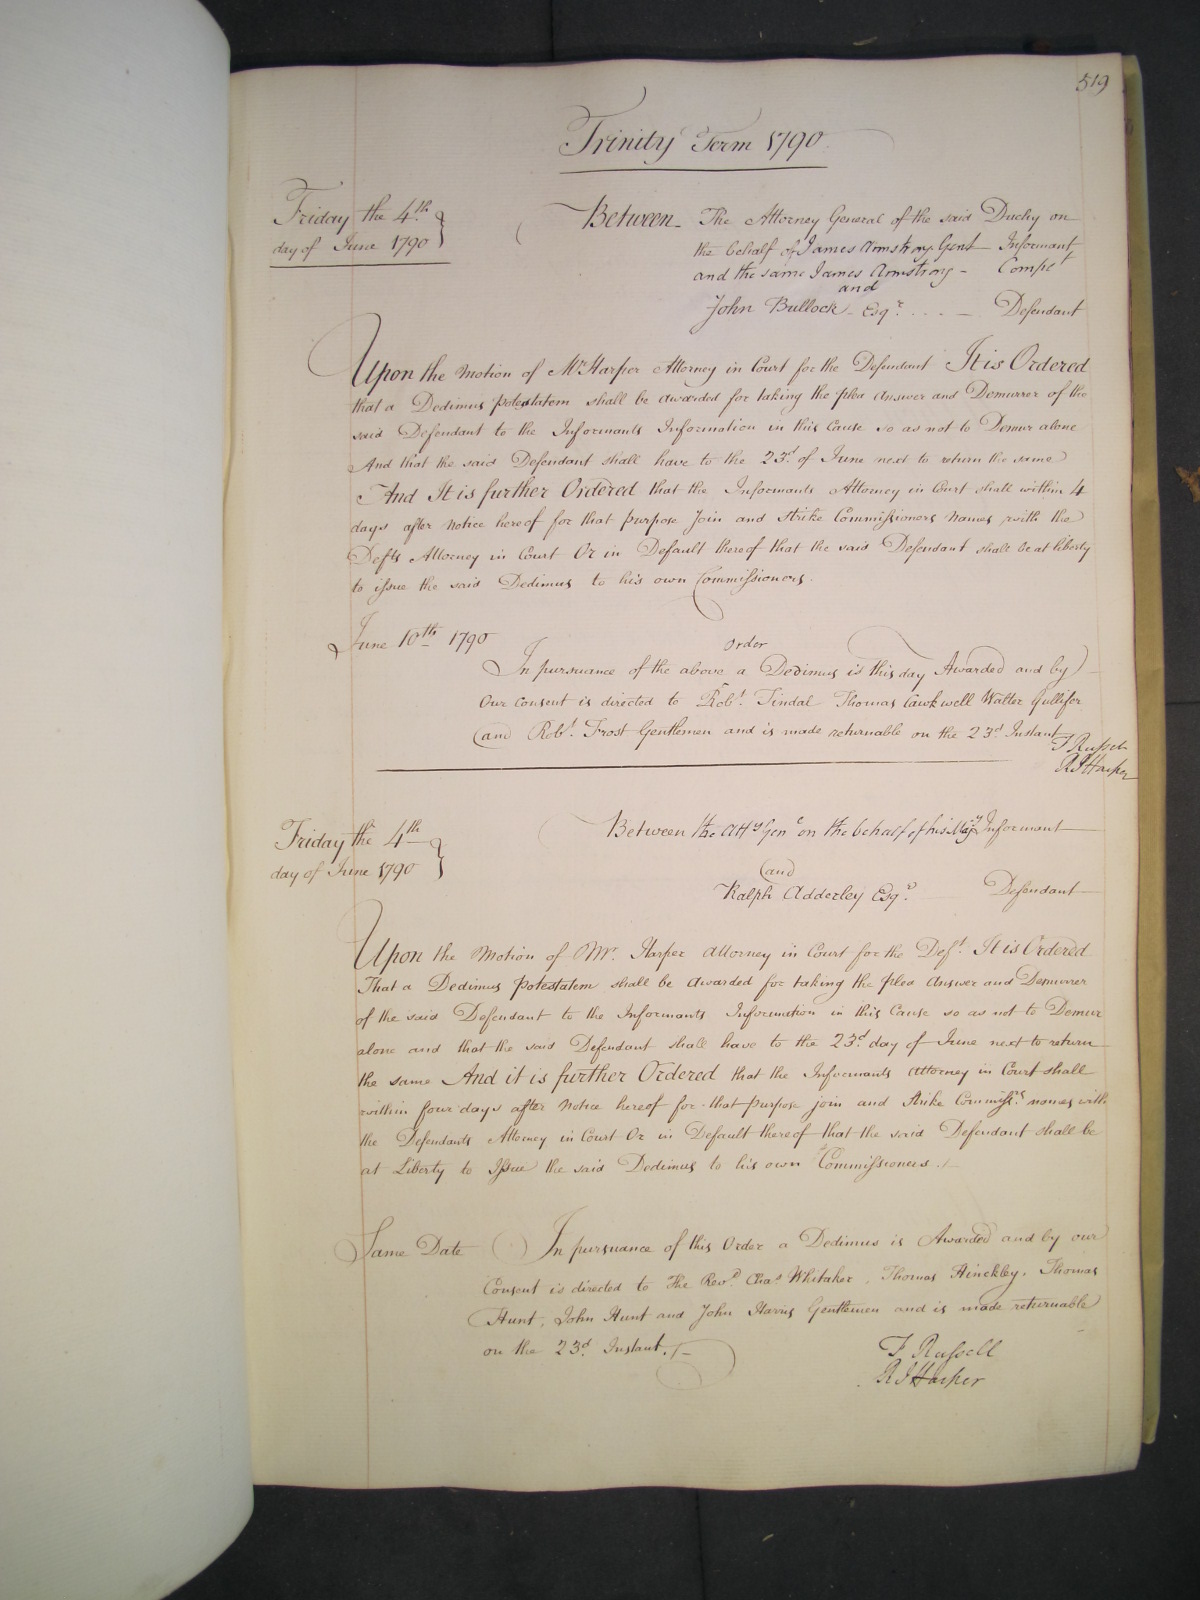 519
Trinity Term 1790
Friday the 4th
day of June 1790
Between The Attorney General of the said Duchy on
the behalf of James Armstrong Gent Informant
and the same James Armstrong - Compt
and
John Bullock Esqr. - - - - Defendant
Upon the Motion of Mr Harper Attorney in Court for the Defendant It is Ordered
that a Dedimus potestatem shall be awarded for taking the plea Answer and Demurrer of the
said Defendant to the Informants Information in this Cause so as not to Demur alone
And that the said Defendant shall have to the 23d. of June next to return the same
And It is further Ordered that the Informants Attorney in Court shall within 4
days after notice hereof for that purpose Join and Strike Commissioners Names with the
Defts Attorney in Court Or in Default thereof that the said Defendant shall be at liberty
to issue the said Dedimus to his own Commissioners.
June 10th 1790
order
In pursuance of the above a Dedimus is this day Awarded and by
Our Consent is directed to Robt. Tindal Thomas Cawkwell Walter Gullifer
and Robt. Frost Gentlemen and is made returnable on the 23d. Instant
F Russell
RJ Harper
Friday the 4th
day of June 1790
Between the Atty Genl on the behalf of his Majy Informant
and
Ralph Adderley Esqr. Defendant
Upon the Motion of Mr. Harper Attorney in Court for the Deft. It is Ordered
That a Dedimus potestatem shall be awarded for taking the plea Answer and Demurrer
of the said Defendant to the Informants Information in this Cause so as not to Demur
alone and that the said Defendant shall have to the 23d. day of June next to return
the same And it is further Ordered that the Informants Attorney in Court shall
within four days after Notice hereof for that purpose join and Strike Commissrs. names with
the Defendants Attorney in Court Or in Default thereof that the said Defendant shall be
at Liberty to Issue the said Dedimus to his own Commissioners. /-
Same Date In pursuance of this Order a Dedimus is Awarded and by our
Consent is directed to The Revd. Chas. Whitaker, Thomas Hinckley, Thomas
Hunt, John Hunt and John Harris Gentlemen and is made returnable
on the 23d. Instant. /-
F Russell
RJ Harper